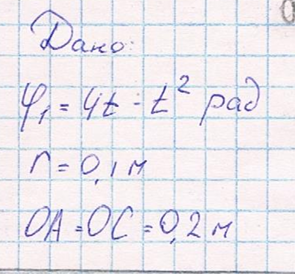 Дано:
φ₁ = 4t - t² рад
r = 0,1 м
OA = OC = 0,2 м